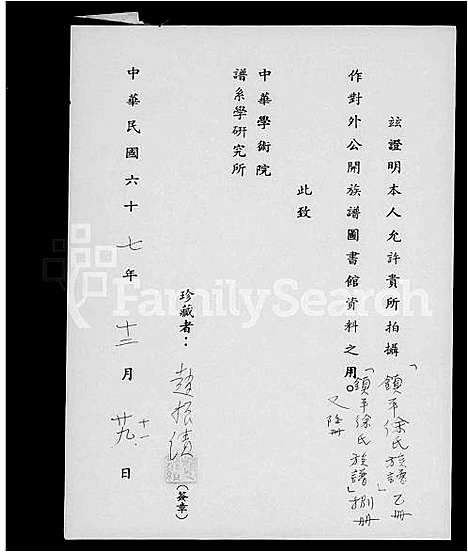 玆證明本人允許貴所拍攝「鎮平徐氏族譜」乙冊
作對外公開族譜圖書館資料之用。「鎮平徐氏族譜」捌冊
此致
中華學術院
譜系學研究所
珍藏者：趙振績
(簽章)
中華民國六十七年十二月廿九日
十一
FamilySearch